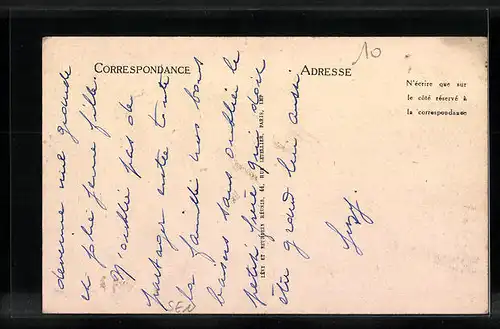 CORRESPONDANCE
ADRESSE
10
N'écrire que sur
le côté réservé à
la correspondance
devenue une grande
et jolie jeune fille.
N'oublie pas de
partager entre toute
la famille nos bons
baisers sans oublier le
petit frère qui doit
être grand lui aussi
Suzy.
LÉVY ET NEURDEIN RÉUNIS, 44, RUE LETELLIER, PARIS
SEN